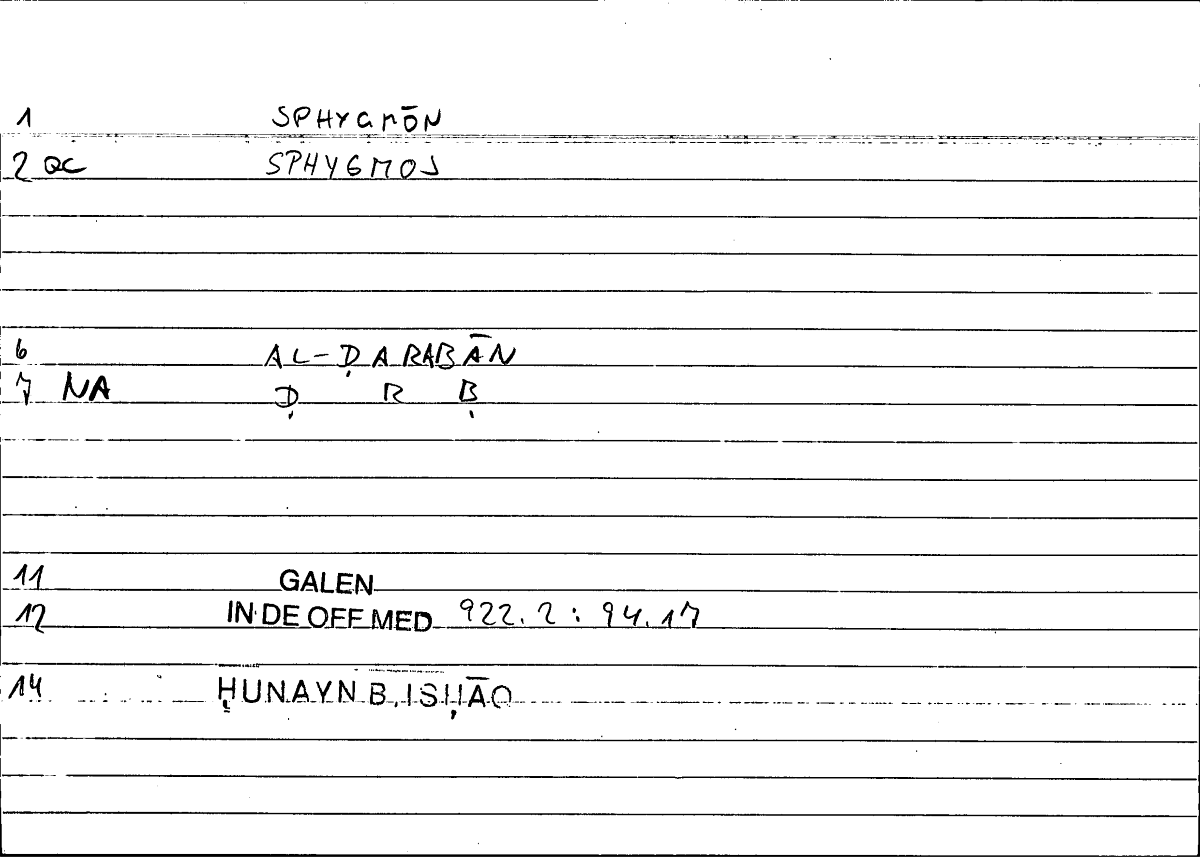 1 SPHYGMŌN
2 QC SPHYGMOS
6 AL-ḌARABĀN
7 NA Ḍ R Ḅ
11 GALEN
12 IN DE OFF MED 922.2 : 94.17
14 ḤUNAYN B. ISḤĀQ